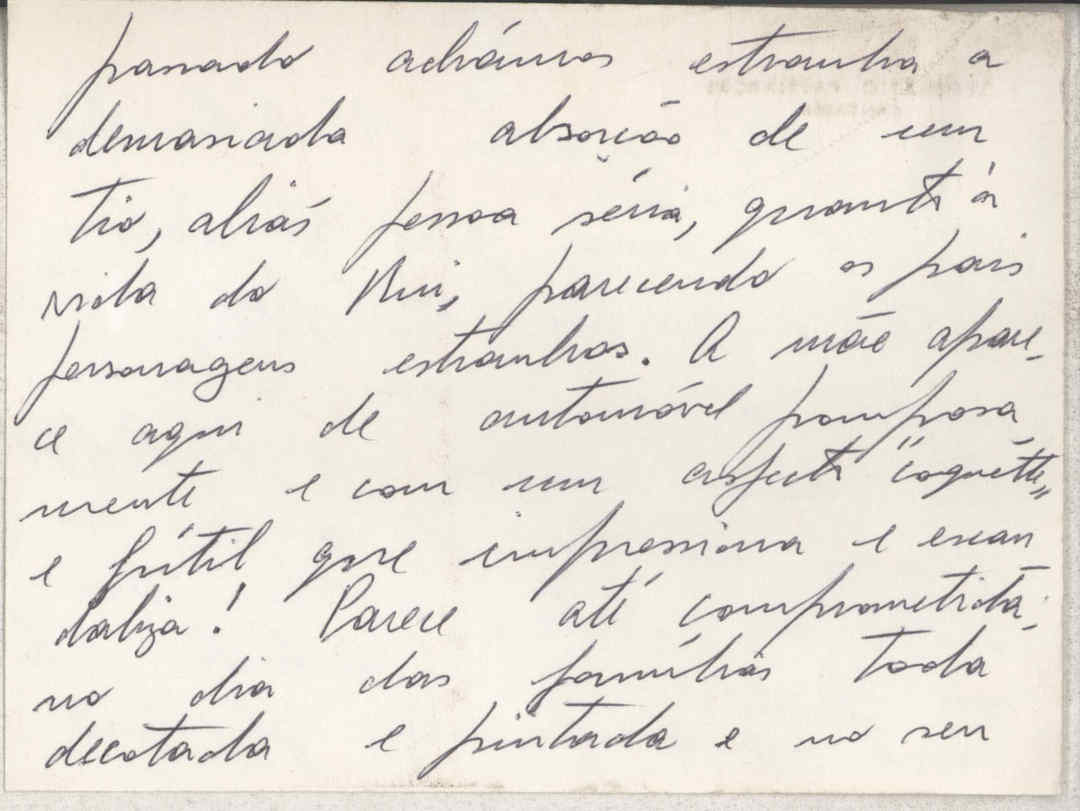 passado achámos estranha a
demasiada absorção de um
tio, aliás pessoa séria, quanto à
vida do Rui, parecendo os pais
personagens estranhos. A mãe apare-
ce aqui de automóvel pomposa
mente e com um aspecto "coquette"
e fútil que impressiona e escan
daliza! Parece até comprometida;
no dia das famílias toda
decotada e pintada e no seu